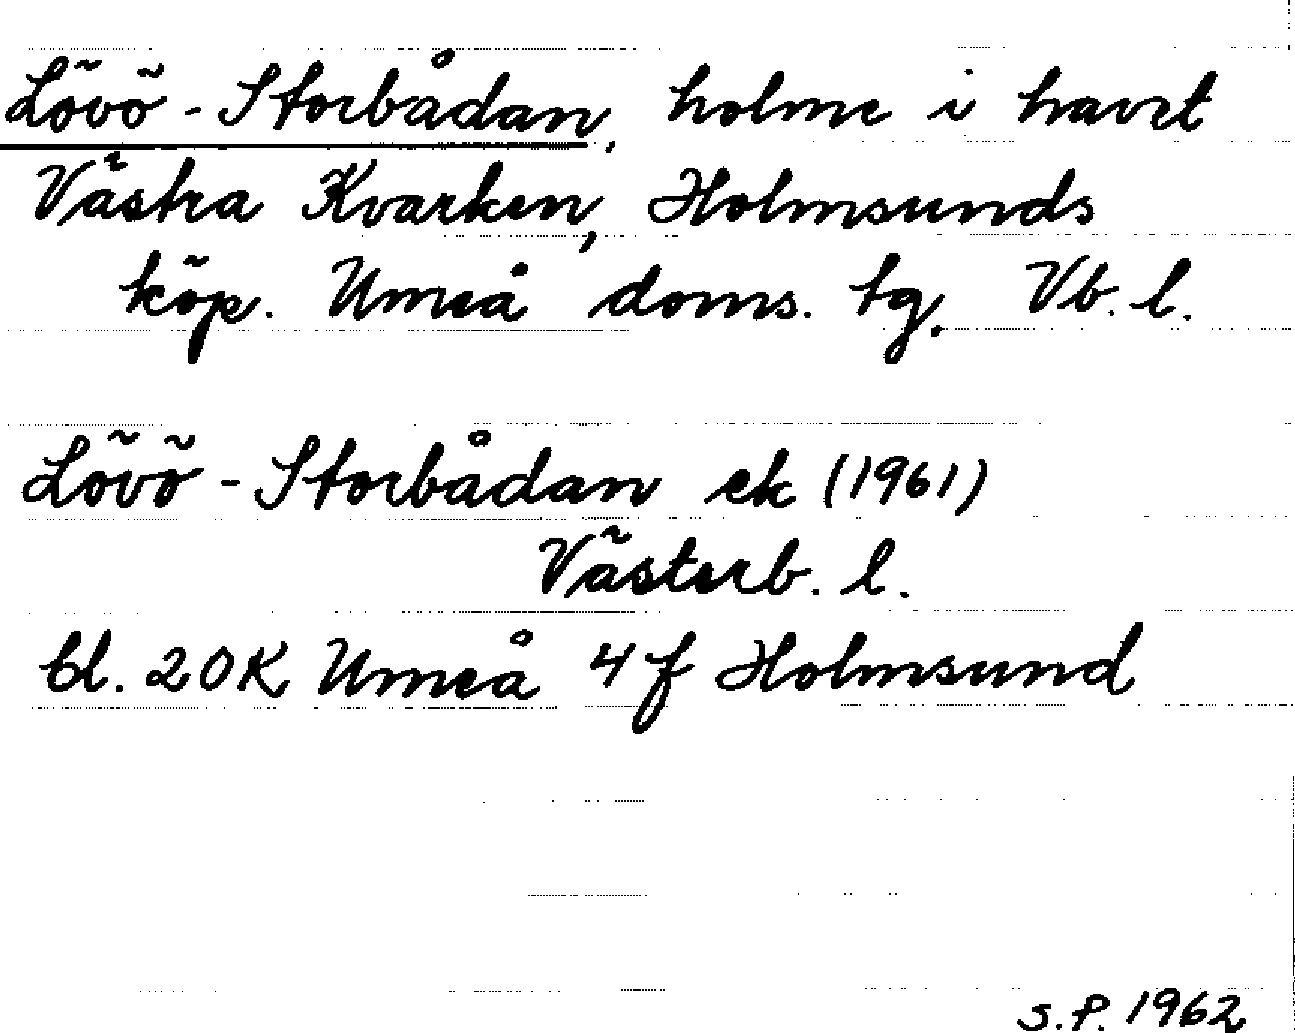 Lövö-Storbådan, holme i havet
Västra Kvarken, Holmsunds
köp. Umeå doms. tg. Vb. l.
Lövö-Storbådan ek (1961)
Västerb. l.
bl. 20K Umeå 4f Holmsund
S.P. 1962